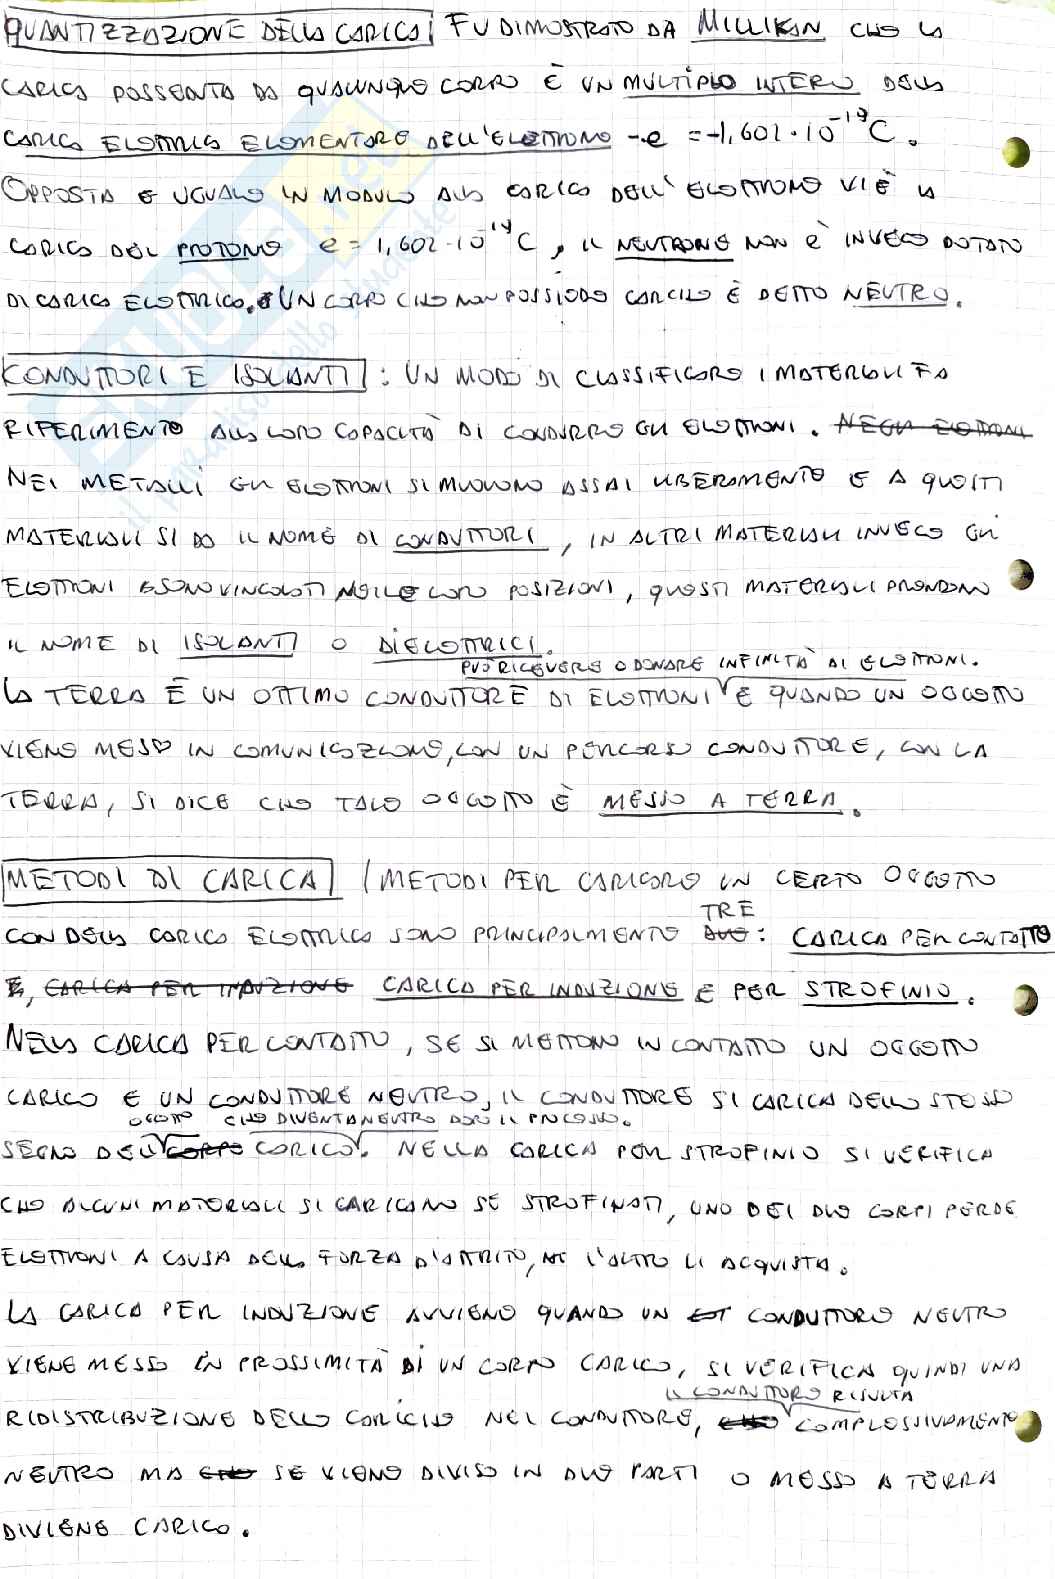 QUANTIZZAZIONE DELLA CARICA FU DIMOSTRATO DA MILLIKAN CHE LA
CARICA POSSEDUTA DA QUALUNQUE CORPO È UN MULTIPLO INTERO DELLA
CARICA ELETTRICA ELEMENTARE DELL'ELETTRONE -e = -1,602·10⁻¹⁹C.
OPPOSTA E UGUALE IN MODULO ALLA CARICA DELL'ELETTRONE VI È LA
CARICA DEL PROTONE e = 1,602·10⁻¹⁹C, IL NEUTRONE NON È INVECE DOTATO
DI CARICA ELETTRICA. UN CORPO CHE NON POSSIEDE CARICHE È DETTO NEUTRO.
CONDUTTORI E ISOLANTI: UN MODO DI CLASSIFICARE I MATERIALI FA
RIFERIMENTO ALLA LORO CAPACITÀ DI CONDURRE GLI ELETTRONI. NEGLI ELETTRONI
NEI METALLI GLI ELETTRONI SI MUOVONO ASSAI LIBERAMENTE E A QUESTI
MATERIALI SI DA IL NOME DI CONDUTTORI, IN ALTRI MATERIALI INVECE GLI
ELETTRONI SONO VINCOLATI NELLE LORO POSIZIONI, QUESTI MATERIALI PRENDONO
IL NOME DI ISOLANTI O DIELETTRICI.
PUÒ RICEVERE O DONARE INFINITÀ DI ELETTRONI.
LA TERRA È UN OTTIMO CONDUTTORE DI ELETTRONI E QUANDO UN OGGETTO
VIENE MESSO IN COMUNICAZIONE, CON UN PERCORSO CONDUTTORE, CON LA
TERRA, SI DICE CHE TALE OGGETTO È MESSO A TERRA.
METODI DI CARICA I METODI PER CARICARE UN CERTO OGGETTO
TRE
CON DELLA CARICA ELETTRICA SONO PRINCIPALMENTE DUE: CARICA PER CONTATTO
E, CARICA PER INDUZIONE CARICA PER INDUZIONE E PER STROFINIO.
NELLA CARICA PER CONTATTO, SE SI METTONO IN CONTATTO UN OGGETTO
CARICO E UN CONDUTTORE NEUTRO, IL CONDUTTORE SI CARICA DELLO STESSO
OGGETTO CHE DIVENTA NEUTRO DOPO IL PROCESSO.
SEGNO DELL' CORPO CARICO. NELLA CARICA PER STROFINIO SI VERIFICA
CHE ALCUNI MATERIALI SI CARICANO SE STROFINATI, UNO DEI DUE CORPI PERDE
ELETTRONI A CAUSA DELLA FORZA D'ATTRITO, L'ALTRO LI ACQUISTA.
LA CARICA PER INDUZIONE AVVIENE QUANDO UN CONDUTTORE NEUTRO
VIENE MESSO IN PROSSIMITÀ DI UN CORPO CARICO, SI VERIFICA QUINDI UNA
IL CONDUTTORE RISULTA
RIDISTRIBUZIONE DELLE CARICHE NEL CONDUTTORE, CHE COMPLESSIVAMENTE
NEUTRO MA CHE SE VIENE DIVISO IN DUE PARTI O MESSO A TERRA
DIVIENE CARICO.